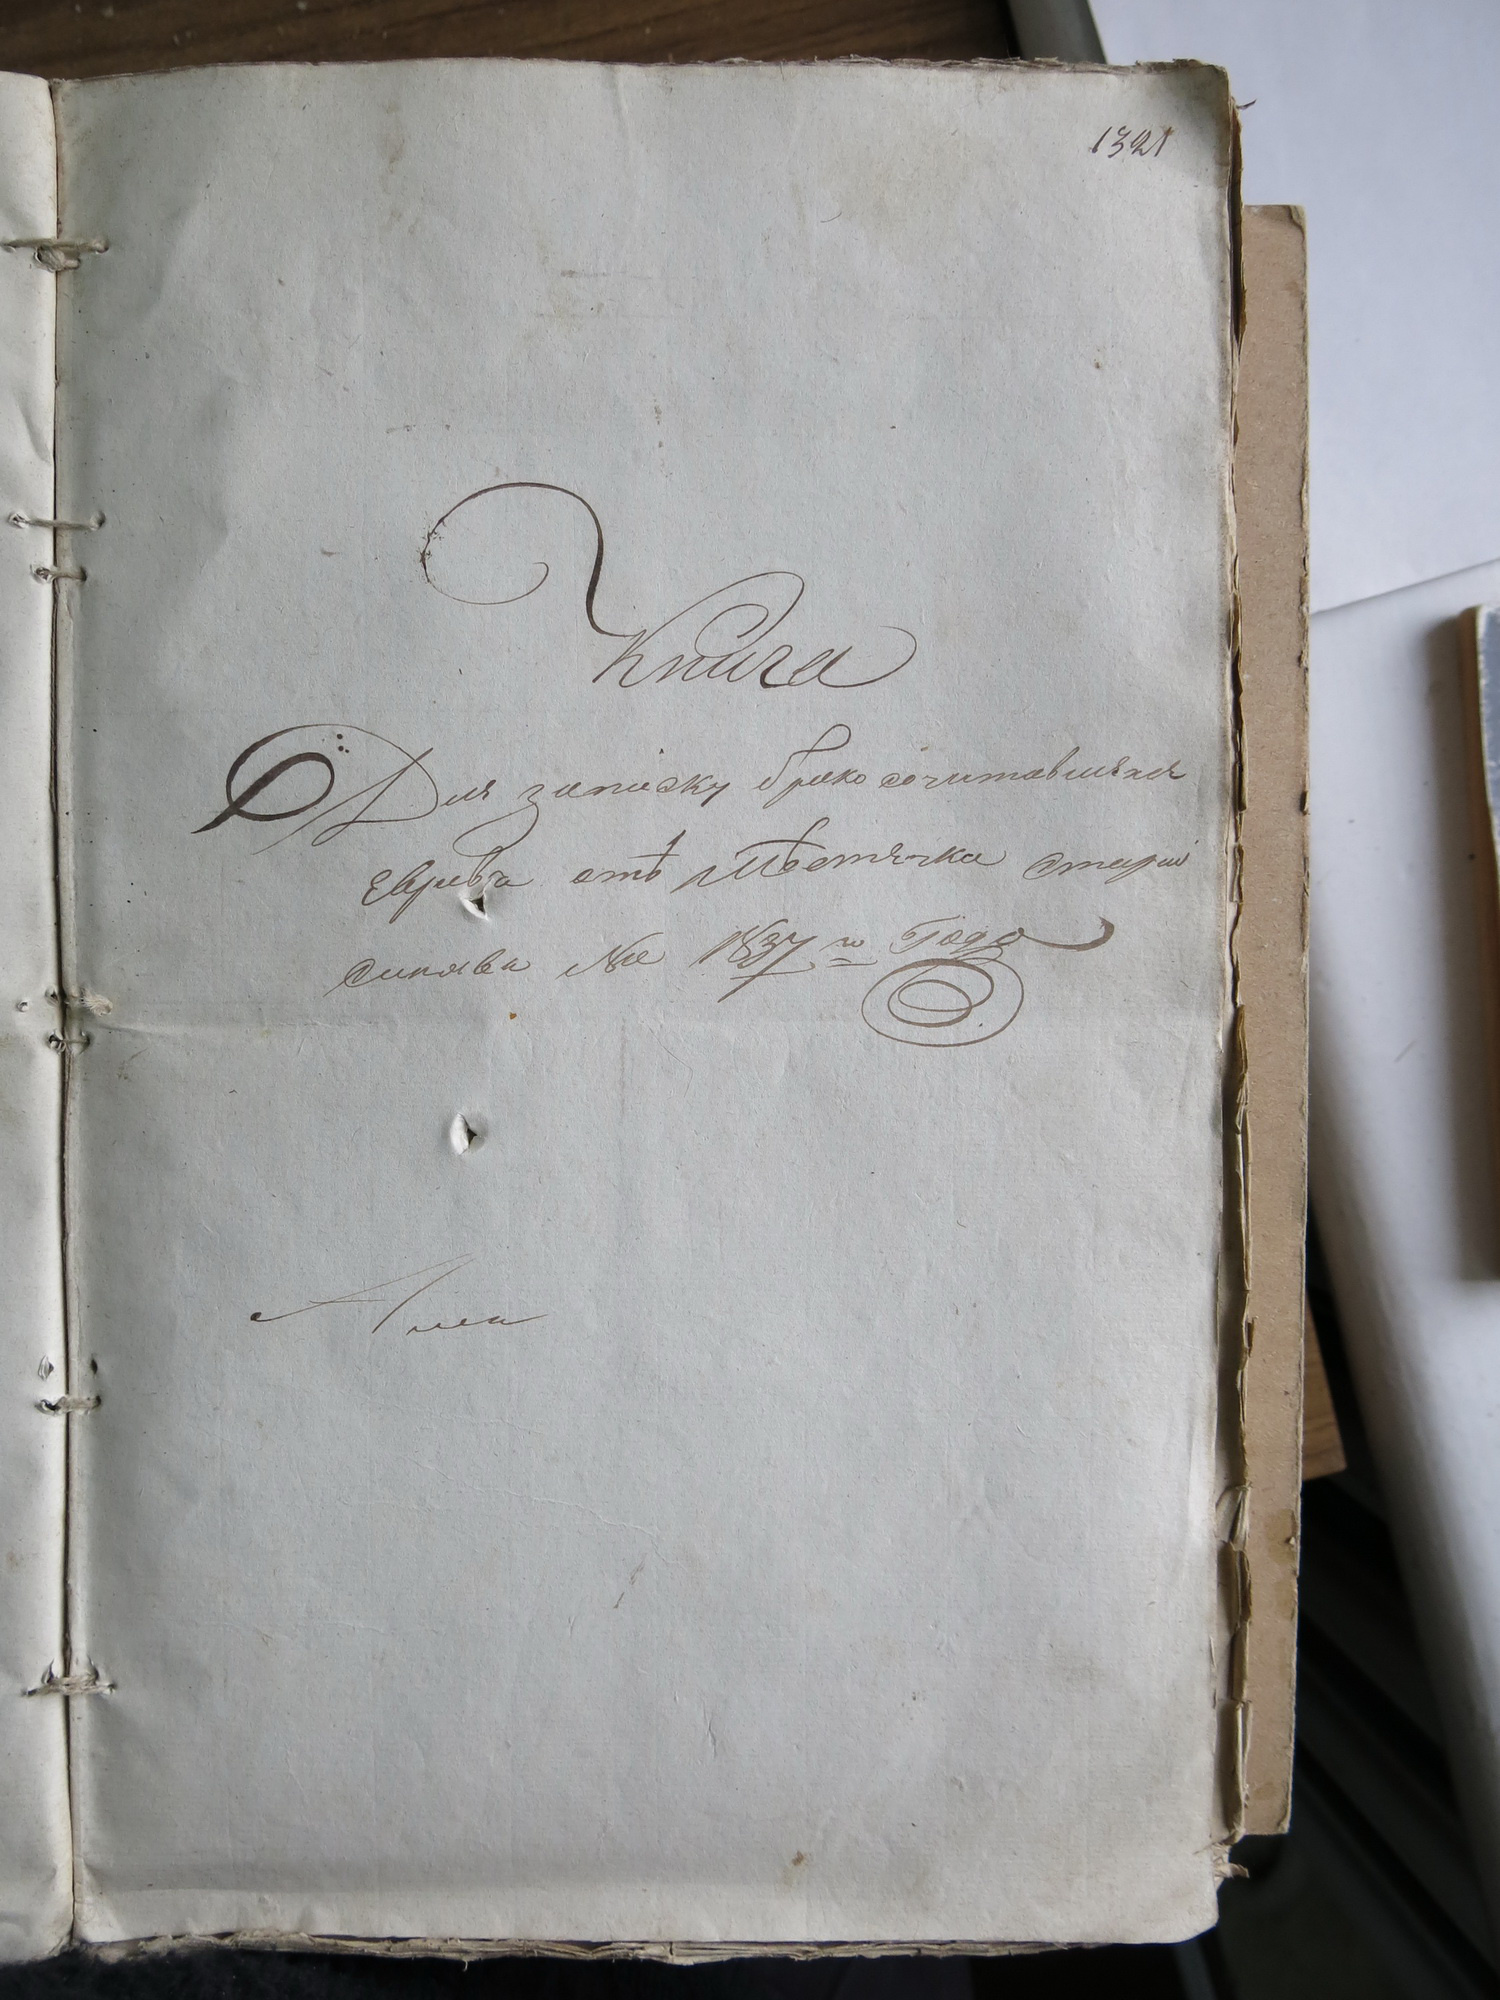 1321
Книга
Для записку бракосочитавшихся
Евревъ отъ Местечка Старой
синява На 1837 го Года